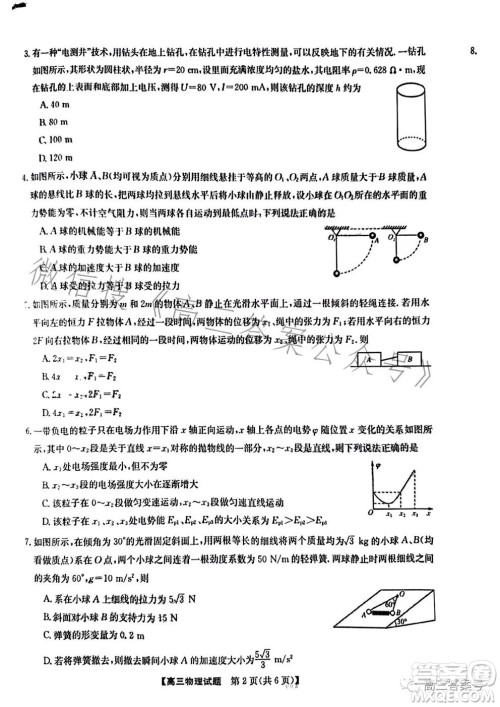 3. 有一种“电测井”技术，用钻头在地上钻孔，在钻孔中进行电特性测量，可以反映地下的有关情况. 一钻孔
8.
如图所示，其形状为圆柱状，半径 r=20 cm，设里面充满浓度均匀的盐水，其电阻率 ρ=0.628 Ω·m，
现在钻孔的上表面和底部加上电压，测得 U=80 V，I=200 mA，则该钻孔的深度 h 约为
A. 40 m
B. 80 m
C. 100 m
D. 120 m
4. 如图所示，小球 A、B(均可视为质点)分别用细线悬挂在等高的 O₁、O₂ 点，A 球的质量大于 B 球的质量，A 球的悬线比 B 球的长，把两球均拉到与
悬线水平后由静止释放，以 O₁、O₂ 所在的水平面的重
力势能为零，不计空气阻力，则在最低点时，下列说法正确的是
A. A 球的机械能等于 B 球的机械能
B. A 球的速度等于 B 球的速度
C. A 球的加速度大于 B 球的加速度
D. A 球受的拉力大于 B 球受的拉力
O₁
A
O₂
B
5. 如图所示，质量分别为 m 和 2m 的物体 A、B 静止在光滑水平面上，通过一根倾斜的轻绳连接. 若用水
平向左的恒力 F 拉物体 A，经过一段时间，两物体的位移为 x₁，绳的张力为 F₁；若用水平向右的恒力
2F 向右拉物体 B，经过相同的一段时间，两物体的位移为 x₂，绳的张力为 F₂，则
A. 2x₁=x₂，F₁=F₂
A
B
6. 一负电荷的粒子只在电场力作用下沿 x 轴正向运动，x 轴上各点的电势 φ 随位置 x 的变化关系如图所
示，其中 0～x₂ 段是关于 x₁ 对称的抛物线的一部分，x₂～x₃ 段是直线，则下列说法正确的是
A. x₁ 处电场强度最小，但不为零
B. 0～x₂ 段的电场强度大小逐渐增大
C. 该粒子在 0～x₂ 段做匀变速运动，x₂～x₃ 段做匀速运动
φ
O
x₁
x₂
x₃
x
7. 如图所示，在倾角为 30°的光滑固定斜面上，用两根等长的细线将两个质量均为√3 kg 的小球 A、B(均
看做质点)系在 O 点，两个小球之间连着一根劲度系数为 50 N/m 的轻弹簧. 两球静止时两根细线之间
的夹角为 60°，g=10 m/s²，则下列说法正确的是
A. 系在小球 A 上细线的拉力为 5√3 N
B. 斜面对小球 A 的支持力为 15 N
C. 弹簧的形变量为 0.2 m
D. 若将弹簧撤去，则撤去瞬间小球 A 的加速度大小为 5√3/3 m/s²
O
A
B
30°
【高三物理试题　第 2 页(共 6 页)】
微信搜《高三答案公众号》
高三答案号